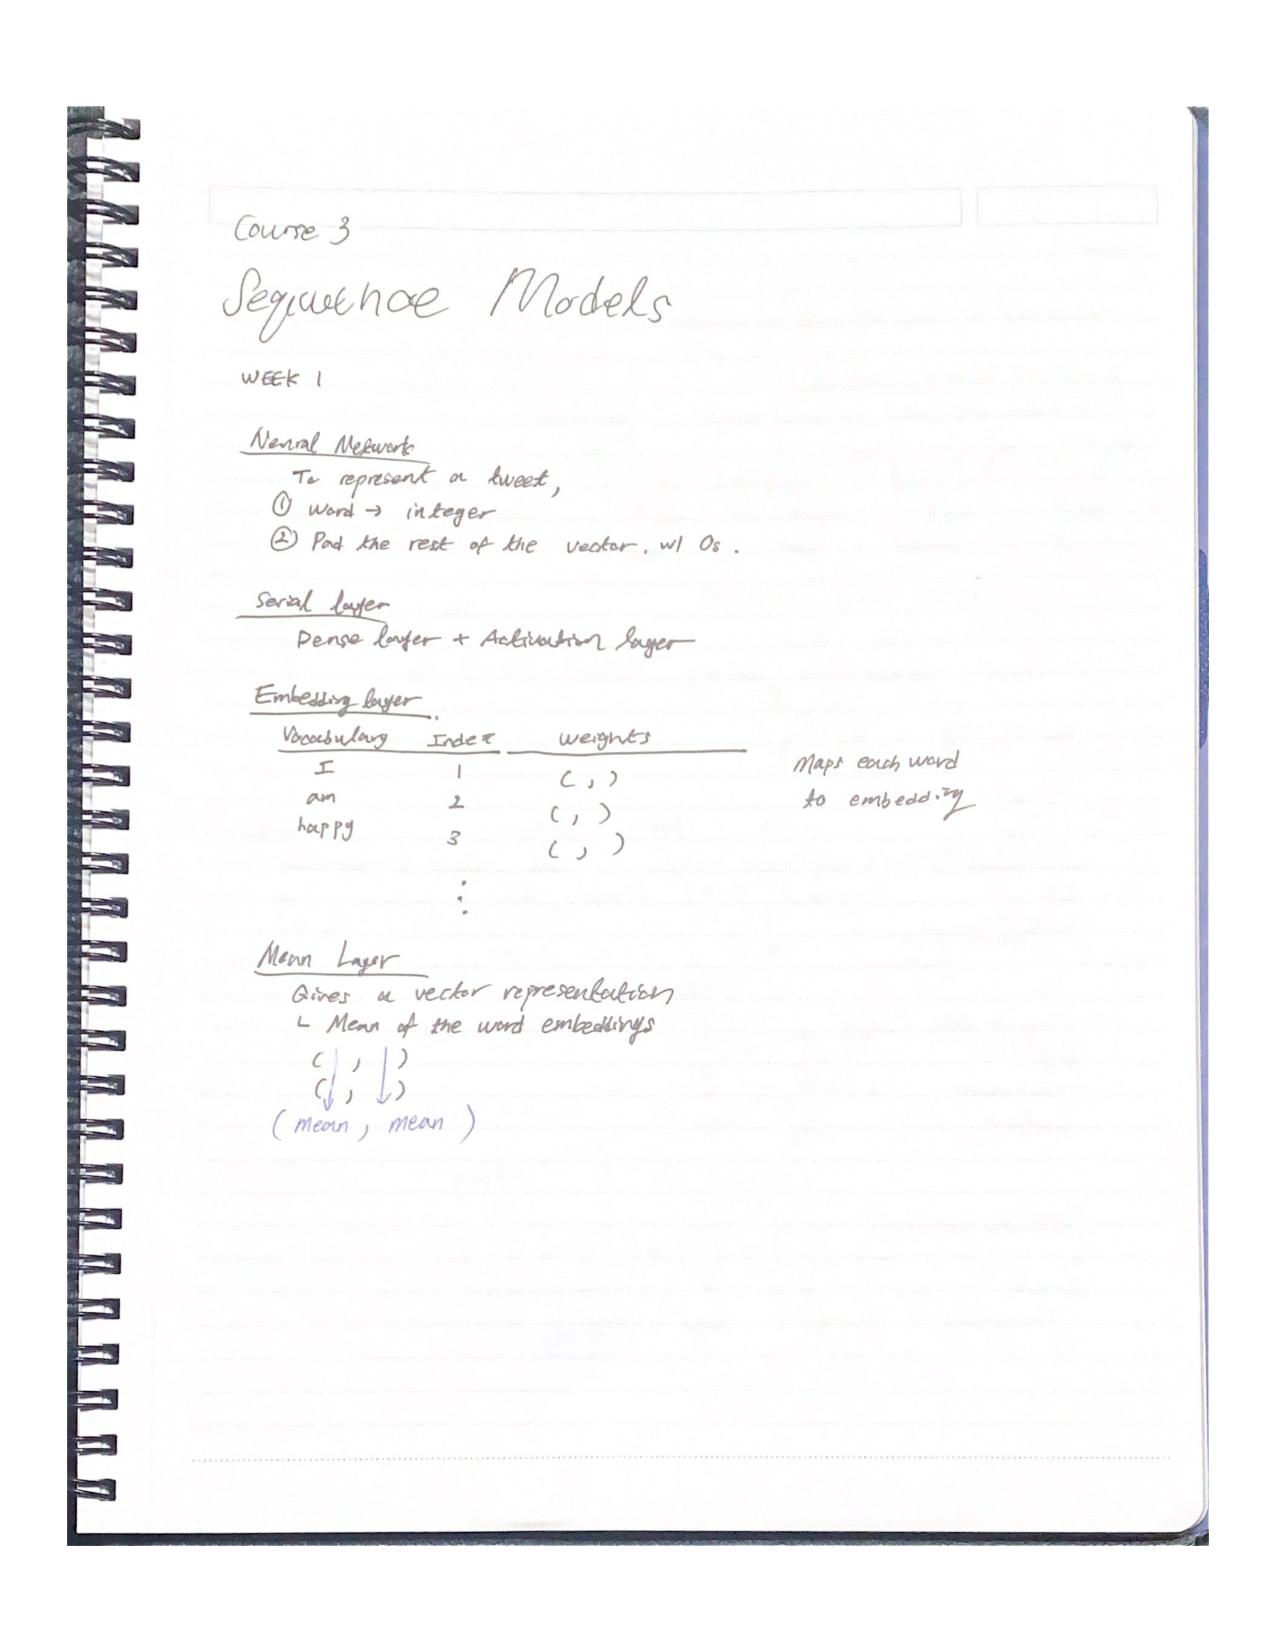 Course 3
Sequence Models
WEEK 1
Neural Network
To represent a tweet,
① Word → integer
② Pad the rest of the vector. w/ 0s.
Serial layer
Dense layer + Activation layer
Embedding layer
Vocabulary Index Weights
I 1 ( , )
am 2 ( , )
happy 3 ( , )
⋮
Maps each word
to embedding
Mean Layer
Gives a vector representation
└ Mean of the word embeddings
( , )
( , )
(mean, mean)